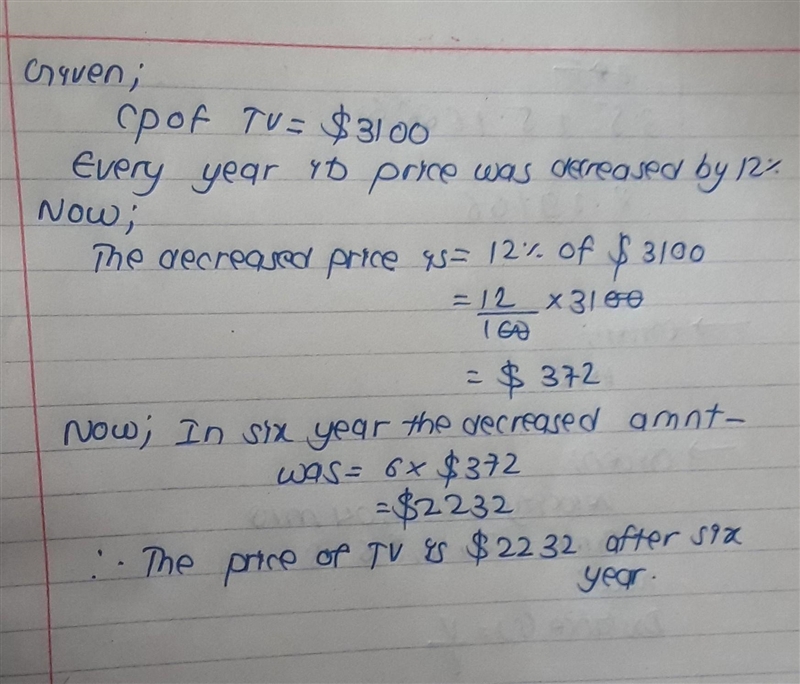 Given;
CP of TV = $3100
Every year its price was decreased by 12%
Now;
The decreased price is = 12% of $3100
= 12/100 × 3100
= $372
Now; In six year the decreased amnt-
was = 6 × $372
= $2232
∴ The price of TV is $2232 after six
year.